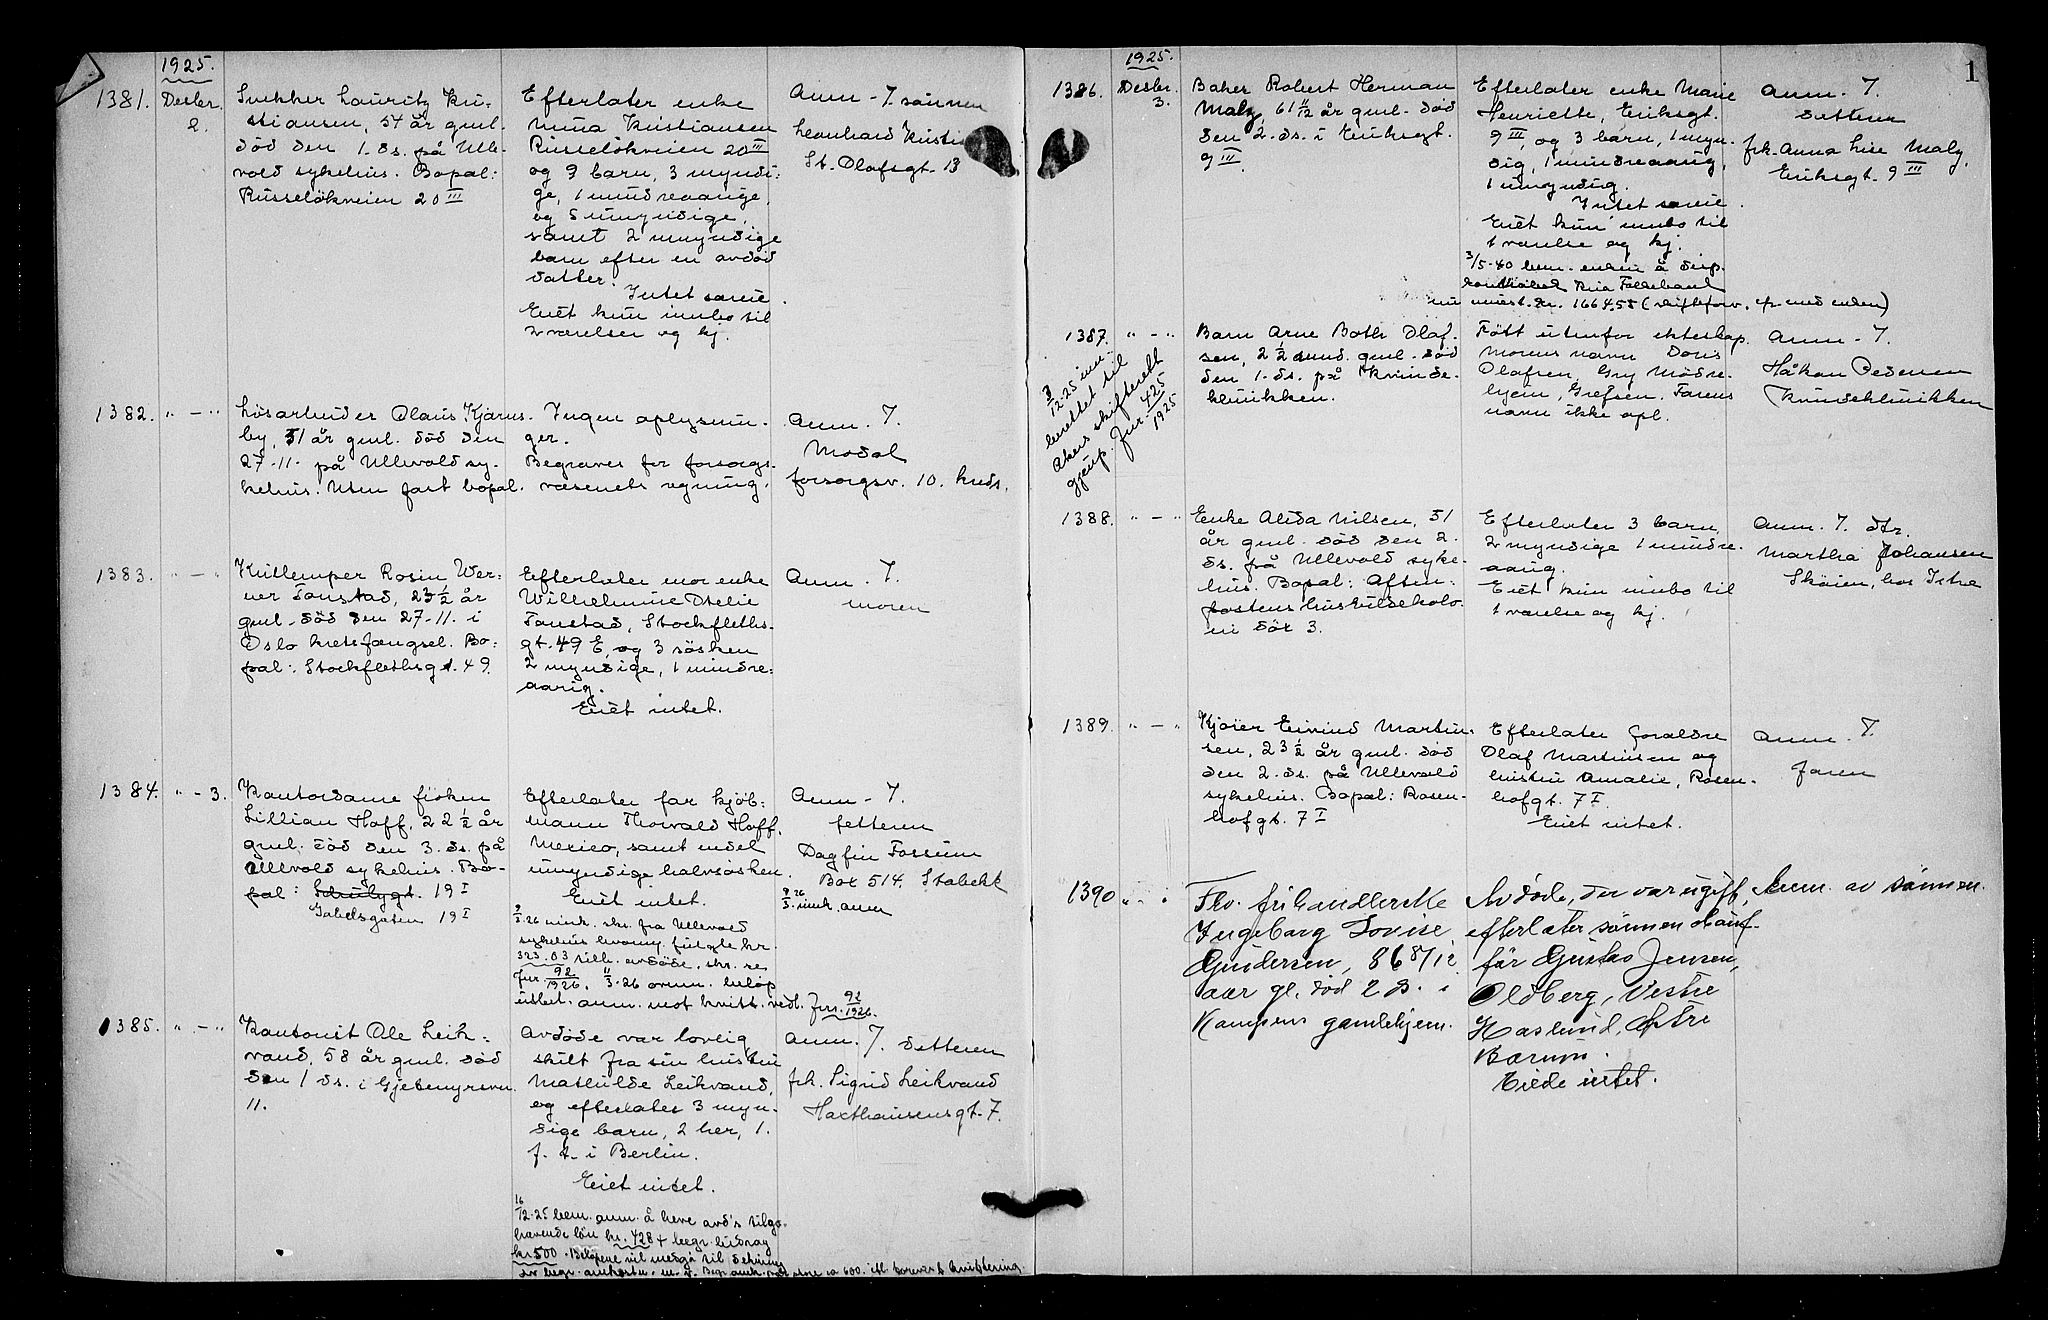 1925.
1381. Desbr. 2.
Snekker Lauritz Kri-
stiansen, 54 år gml.
död den 1. ds. på Ulle-
vold sykehus. Bopal:
Russelökveien 20 III
Efterlater enke
Nina Kristiansen
Russelökveien 20 III
og 9 barn, 3 myndi-
ge, 1 mindreaarige,
og 5 umyndige,
samt 2 umyndige
barn efter en avdöd
datter.
Intet særeie.
Eiet kun innbo til
2 værelser og kj.
Anm. - T. sönnen
Leonhard Kristi
St. Olafsgt. 13
1382. " - "
Lösarbeider Olaus Kjærns-
by, 51 år gml. död den
27-11- på Ullevold sy-
kehus. Uten fast bopal.
Ingen oplysnin-
ger.
Begraves for forsorgs-
væsenets regning.
Anm. T.
Modal
forsorgsv. 10. kreds.
1383. " - "
Krittemper Rosin Wer-
ner Tonstad, 23 1/2 år
gml. död den 27-11. i
Oslo kretsfængsel. Bo-
pal: Stockflethsgt. 49.
Efterlater mor enke
Wilhelmine Otelie
Tonstad, Stockfleths-
gt. 49 E, og 3 sösken
2 myndige, 1 mindre-
aarig.
Eiet intet.
Anm. T.
moren
1384. " - 3.
Kontordame fröken
Lillian Hoff, 22 1/2 år
gml. död den 3. ds. på
Ullevold sykehus. Bo-
pal: Schubygt. 19 I
Gabelsgaten 19 I
Efterlater far kjöb-
mann Thorvald Hoff,
Mexico, samt endel
umyndige halvsösken.
Eiet intet.
26 innk. skr. fra Ullevold
sykehus hvorav fulgte kr.
323.03 tilh. avdöde, skr. se
Jnr. 92/1926. 11/3-26 ovnn. belöp
utbet. anm. mot kvitt. vedl. Jnr. 92/1926.
Anm. - T.
fetteren
Dagfin Fossum
Box 514. Stabekk
26 innk. anm
1385. " - "
Kontorist Ole Leik-
vand, 58 år gml. död
den 1 ds. i Gjetemyrsvn.
11.
Avdöde var lovlig
skilt fra sin hustru
Mathilde Leikvand,
og efterlater 3 myn-
dige barn, 2 her, 1.
f. t. i Berlin.
Eiet intet.
16/12-25 bem. anm. å heve avd's tilgo-
havende lön kr. 428 + begr. bidrag
kr. 500. Belöpene vil medgå til dekning
av begr. omkostn. m. v.
Anm. T. datteren
frk. Sigrid Leikvand
Haxthausensgt. 7.
1
1925.
1386. Desbr. 3.
Baker Robert Herman
Malz, 61 11/12 år gml. död
den 2. ds. i Eriksgt.
9 III.
Efterlater enke Marie
Henriette, Eriksgt.
9 III, og 3 barn, 1 myn-
dig, 1 mindreaarig,
1 umyndig.
Intet særeie.
Eiet kun innbo til
1 værelse og kj.
3/5-40 bem. enken å disp.
nu innest. kr. 1664.55 (skifteforv. op. med enken)
Anm. T.
datteren
frk. Anna Lise Malz.
Eriksgt. 9 III
1387. " - "
3/12-25 inn-
berettet til
Akers skifterett
gjenp. Jnr. 425/1925
Barn Arne Both Olaf-
sen, 2 1/2 mnd. gml. död
den 1. ds. på Kvinde-
klinikken.
Född utenfor ekteskap.
Morens navn Doris
Olafsen, Gry Mödre-
hjem, Grefsen. Farens
navn ikke opl.
Anm. - T.
Håkon Pedersen
Kvindeklinikken
1388. " - "
Enke Alida Nilsen, 51
år gml. död den 2.
ds. på Ullevold syke-
hus. Bopal: Aften-
postens huskuldekolo-
ni dör 3.
Efterlater 3 barn,
2 myndige 1 mindre-
aarig.
Eiet kun innbo til
1 værelse og kj.
Anm. T. dtr.
Martha Johansen
Sköien, hos Istre
1389. " - "
Kjörer Eivind Martin-
sen, 23 1/2 år gml. död
den 2. ds. på Ullevold
sykehus. Bopal: Rosen-
hofgt. 7 I
Efterlater foreldre
Olaf Martinsen og
hustru Amalie, Rosen-
hofgt. 7 I.
Eiet intet.
Anm. T.
faren
1390 " - "
Fhv. frihandlerske
Ingeborg Lovise
Gundersen, 86 8/12
aar gl. död 2 ds. i
Kampens gamlehjem.
Avdöde, der var ugift,
efterlater sönnen chauf-
för Gustav Jensen,
Oldberg, Vestre
Haslund, Östre
Bærum.
Eiede intet.
Anm. av sönnen.